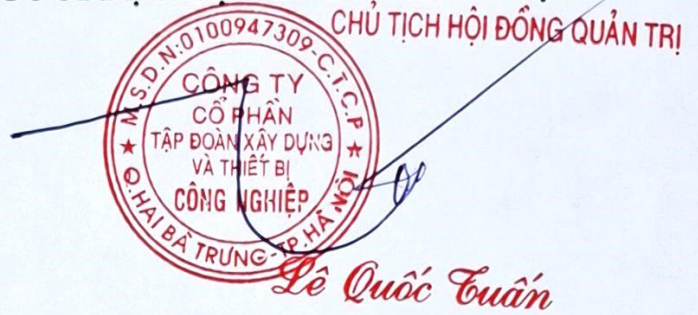 CHỦ TỊCH HỘI ĐỒNG QUẢN TRỊ
M.S.D.N:0100947309-C.T.C.P
CÔNG TY
CỔ PHẦN
TẬP ĐOÀN XÂY DỰNG
VÀ THIẾT BỊ
CÔNG NGHIỆP
Q.HAI BÀ TRƯNG-TP.HÀ NỘI
Lê Quốc Tuấn